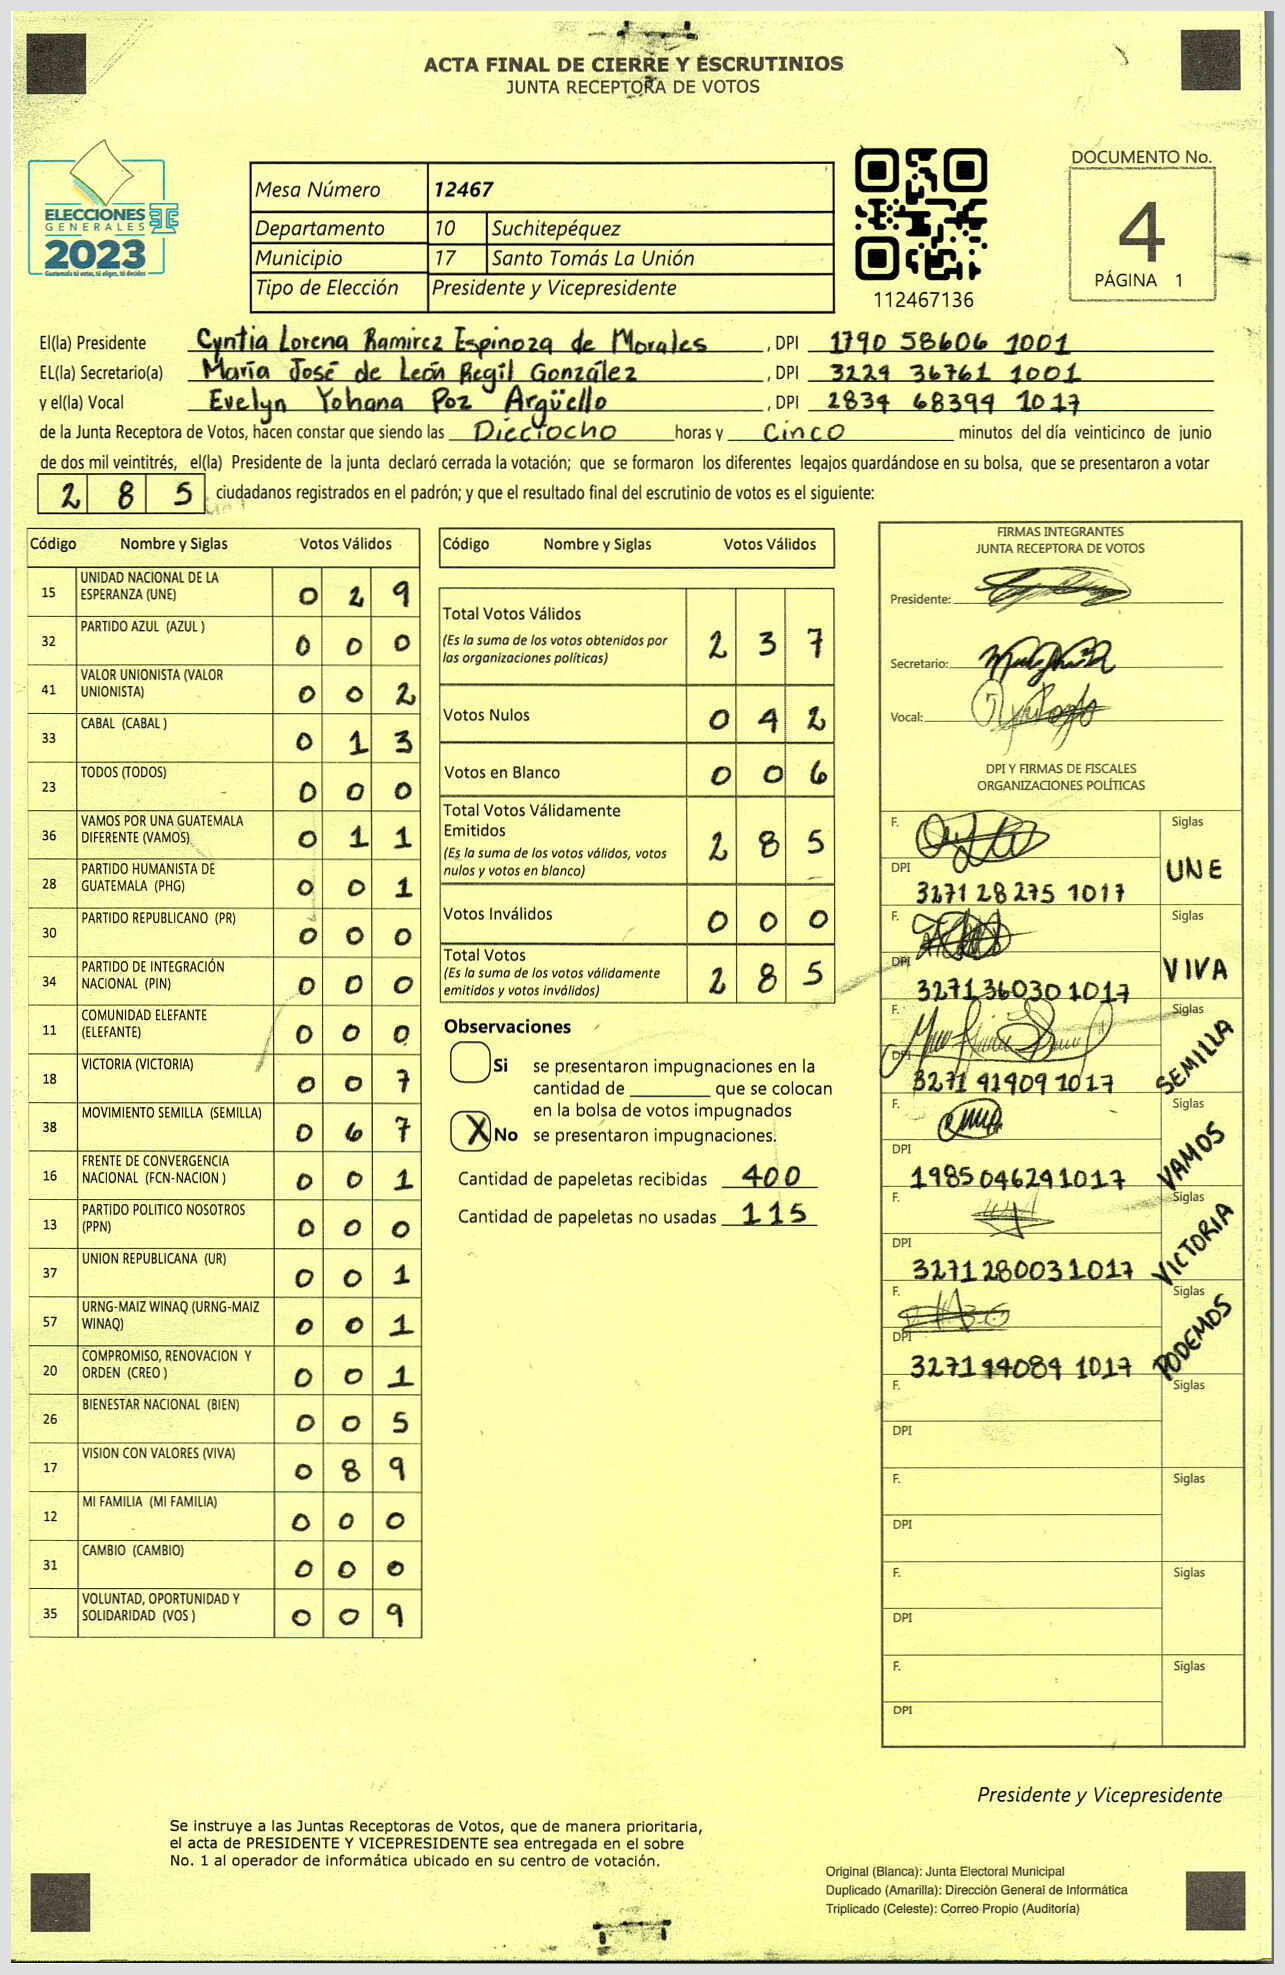 ACTA FINAL DE CIERRE Y ESCRUTINIOS
JUNTA RECEPTORA DE VOTOS
ELECCIONES
GENERALES
2023
Guatemala tú votas, tú eliges, tú decides
Mesa Número 12467
Departamento 10 Suchitepéquez
Municipio 17 Santo Tomás La Unión
Tipo de Elección Presidente y Vicepresidente
112467136
DOCUMENTO No.
4
PÁGINA 1
El(la) Presidente Cyntia Lorena Ramirez Espinoza de Morales, DPI 1790 58606 1001
EL(la) Secretario(a) María José de León Regil González, DPI 3229 36761 1001
y el(la) Vocal Evelyn Yohana Poz Argüello, DPI 2834 68399 1017
de la Junta Receptora de Votos, hacen constar que siendo las Dieciocho horas y Cinco minutos del día veinticinco de junio
de dos mil veintitrés, el(la) Presidente de la junta declaró cerrada la votación; que se formaron los diferentes legajos guardándose en su bolsa, que se presentaron a votar
2 8 5 ciudadanos registrados en el padrón; y que el resultado final del escrutinio de votos es el siguiente:
Código Nombre y Siglas Votos Válidos
15 UNIDAD NACIONAL DE LA ESPERANZA (UNE) 0 2 9
32 PARTIDO AZUL (AZUL ) 0 0 0
41 VALOR UNIONISTA (VALOR UNIONISTA) 0 0 2
33 CABAL (CABAL ) 0 1 3
23 TODOS (TODOS) 0 0 0
36 VAMOS POR UNA GUATEMALA DIFERENTE (VAMOS) 0 1 1
28 PARTIDO HUMANISTA DE GUATEMALA (PHG) 0 0 1
30 PARTIDO REPUBLICANO (PR) 0 0 0
34 PARTIDO DE INTEGRACIÓN NACIONAL (PIN) 0 0 0
11 COMUNIDAD ELEFANTE (ELEFANTE) 0 0 0
18 VICTORIA (VICTORIA) 0 0 7
38 MOVIMIENTO SEMILLA (SEMILLA) 0 6 7
16 FRENTE DE CONVERGENCIA NACIONAL (FCN-NACION ) 0 0 1
13 PARTIDO POLITICO NOSOTROS (PPN) 0 0 0
37 UNION REPUBLICANA (UR) 0 0 1
57 URNG-MAIZ WINAQ (URNG-MAIZ WINAQ) 0 0 1
20 COMPROMISO, RENOVACION Y ORDEN (CREO ) 0 0 1
26 BIENESTAR NACIONAL (BIEN) 0 0 5
17 VISION CON VALORES (VIVA) 0 8 9
12 MI FAMILIA (MI FAMILIA) 0 0 0
31 CAMBIO (CAMBIO) 0 0 0
35 VOLUNTAD, OPORTUNIDAD Y SOLIDARIDAD (VOS ) 0 0 9
Código Nombre y Siglas Votos Válidos
Total Votos Válidos 2 3 7
(Es la suma de los votos obtenidos por
las organizaciones políticas)
Votos Nulos 0 4 2
Votos en Blanco 0 0 6
Total Votos Válidamente
Emitidos 2 8 5
(Es la suma de los votos válidos, votos
nulos y votos en blanco)
Votos Inválidos 0 0 0
Total Votos 2 8 5
(Es la suma de los votos válidamente
emitidos y votos inválidos)
Observaciones
Si se presentaron impugnaciones en la
cantidad de ________ que se colocan
en la bolsa de votos impugnados
X No se presentaron impugnaciones.
Cantidad de papeletas recibidas 400
Cantidad de papeletas no usadas 115
FIRMAS INTEGRANTES
JUNTA RECEPTORA DE VOTOS
Presidente:
Secretario:
Vocal:
DPI Y FIRMAS DE FISCALES
ORGANIZACIONES POLÍTICAS
F. Siglas
DPI 3271 28 275 1017 UNE
F. Siglas
DPI 3271 36030 1017 VIVA
F. Siglas
DPI 3271 91909 1017 SEMILLA
F. Siglas
DPI 1985 04629 1017 VAMOS
F. Siglas
DPI 3271 28003 1017 VICTORIA
F. Siglas
DPI 3271 44089 1017 PODEMOS
F. Siglas
DPI
F. Siglas
DPI
F. Siglas
DPI
F. Siglas
DPI
Presidente y Vicepresidente
Se instruye a las Juntas Receptoras de Votos, que de manera prioritaria,
el acta de PRESIDENTE Y VICEPRESIDENTE sea entregada en el sobre
No. 1 al operador de informática ubicado en su centro de votación.
Original (Blanca): Junta Electoral Municipal
Duplicado (Amarilla): Dirección General de Informática
Triplicado (Celeste): Correo Propio (Auditoría)